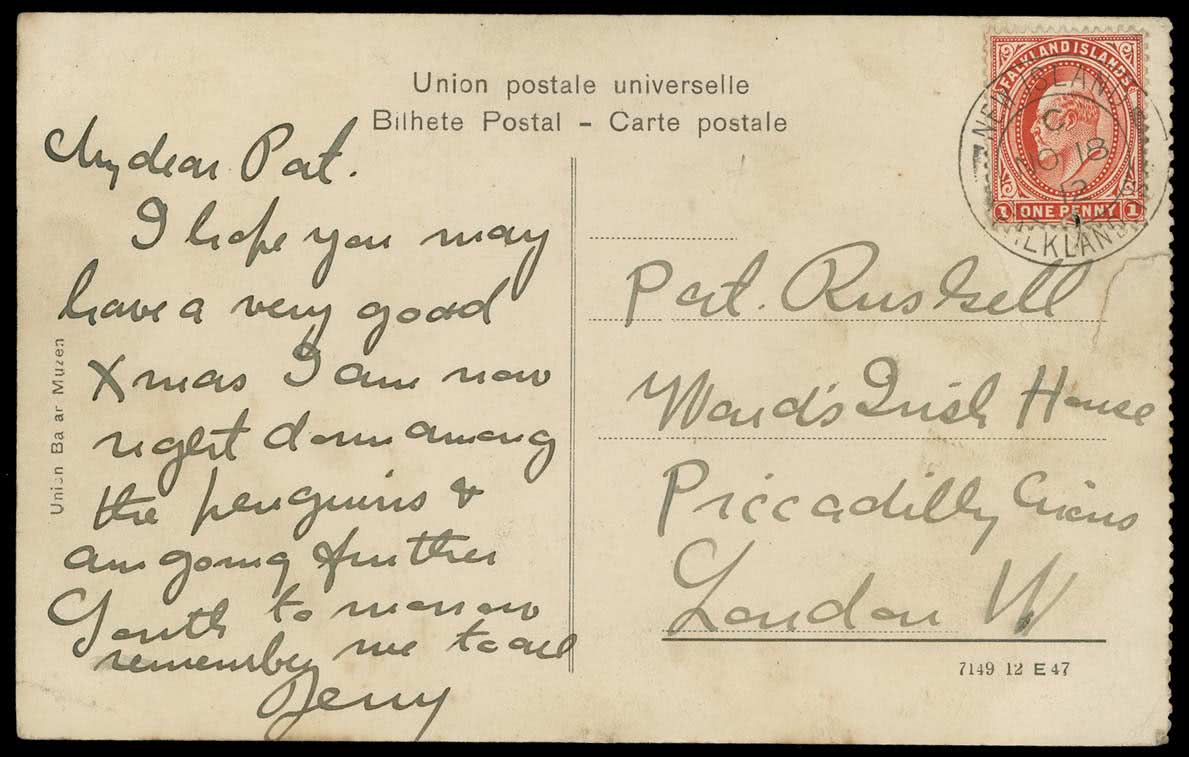 Union postale universelle
Bilhete Postal – Carte postale
My dear Pat.
I hope you may
have a very good
Xmas I am now
right down among
the penguins &
am going further
South to morrow
remember me to all
Jerry
Pat. Russell
Ward's Irish House
Piccadilly Circus
London W
7149 12 E 47
FALKLAND ISLANDS
1 ONE PENNY 1
NEW ISLAND
C
NO 18
12
FALKLAND